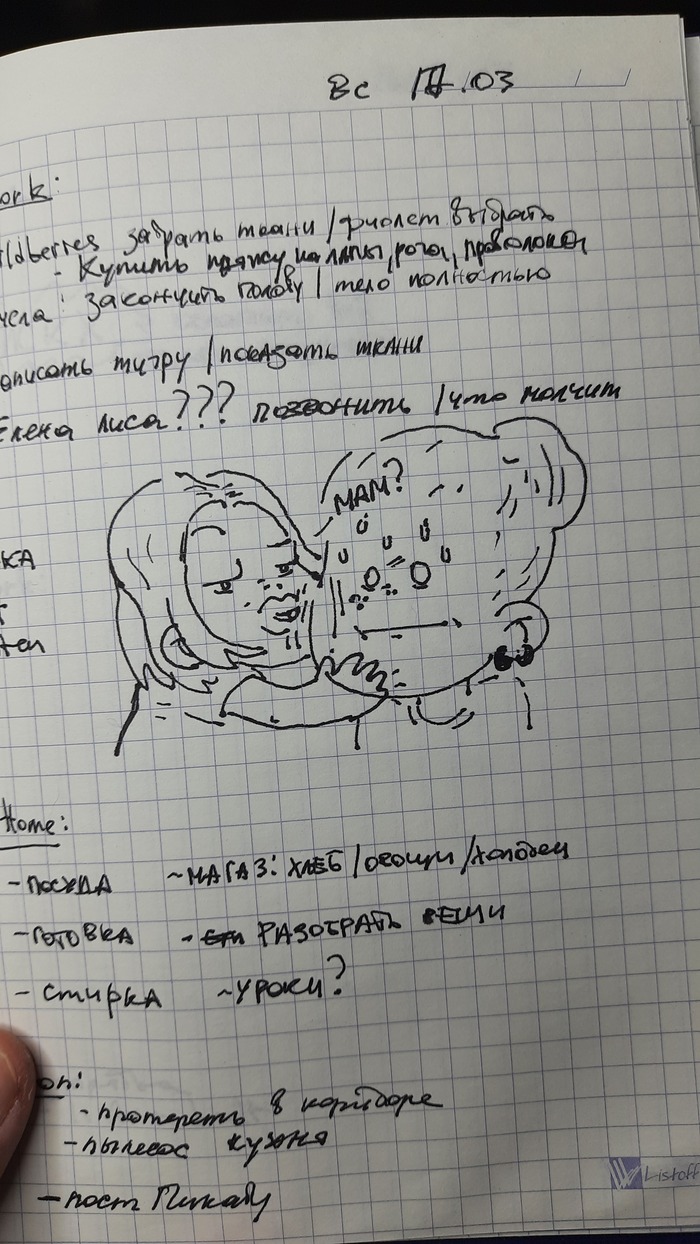 Вс .03
ork:
ildberres забрать ткани / фиолет выбрать
- Купить пряжу на лапы, рога, проволока
чела: закончить голову / тело полностью
описать тигру / показать ткани
Елена лиса ??? позвонить / что молчит
МАМ?
КА
Home:
- посуда ~ МАГАЗ: ХЛЕБ / овощи / холодец
- ГОТОВКА - РАЗОБРАТЬ ВЕЩИ
- стирка ~ УРОКИ?
on:
- протереть в коридоре
- пылесос кухня
- пост Пикабу
Listoff